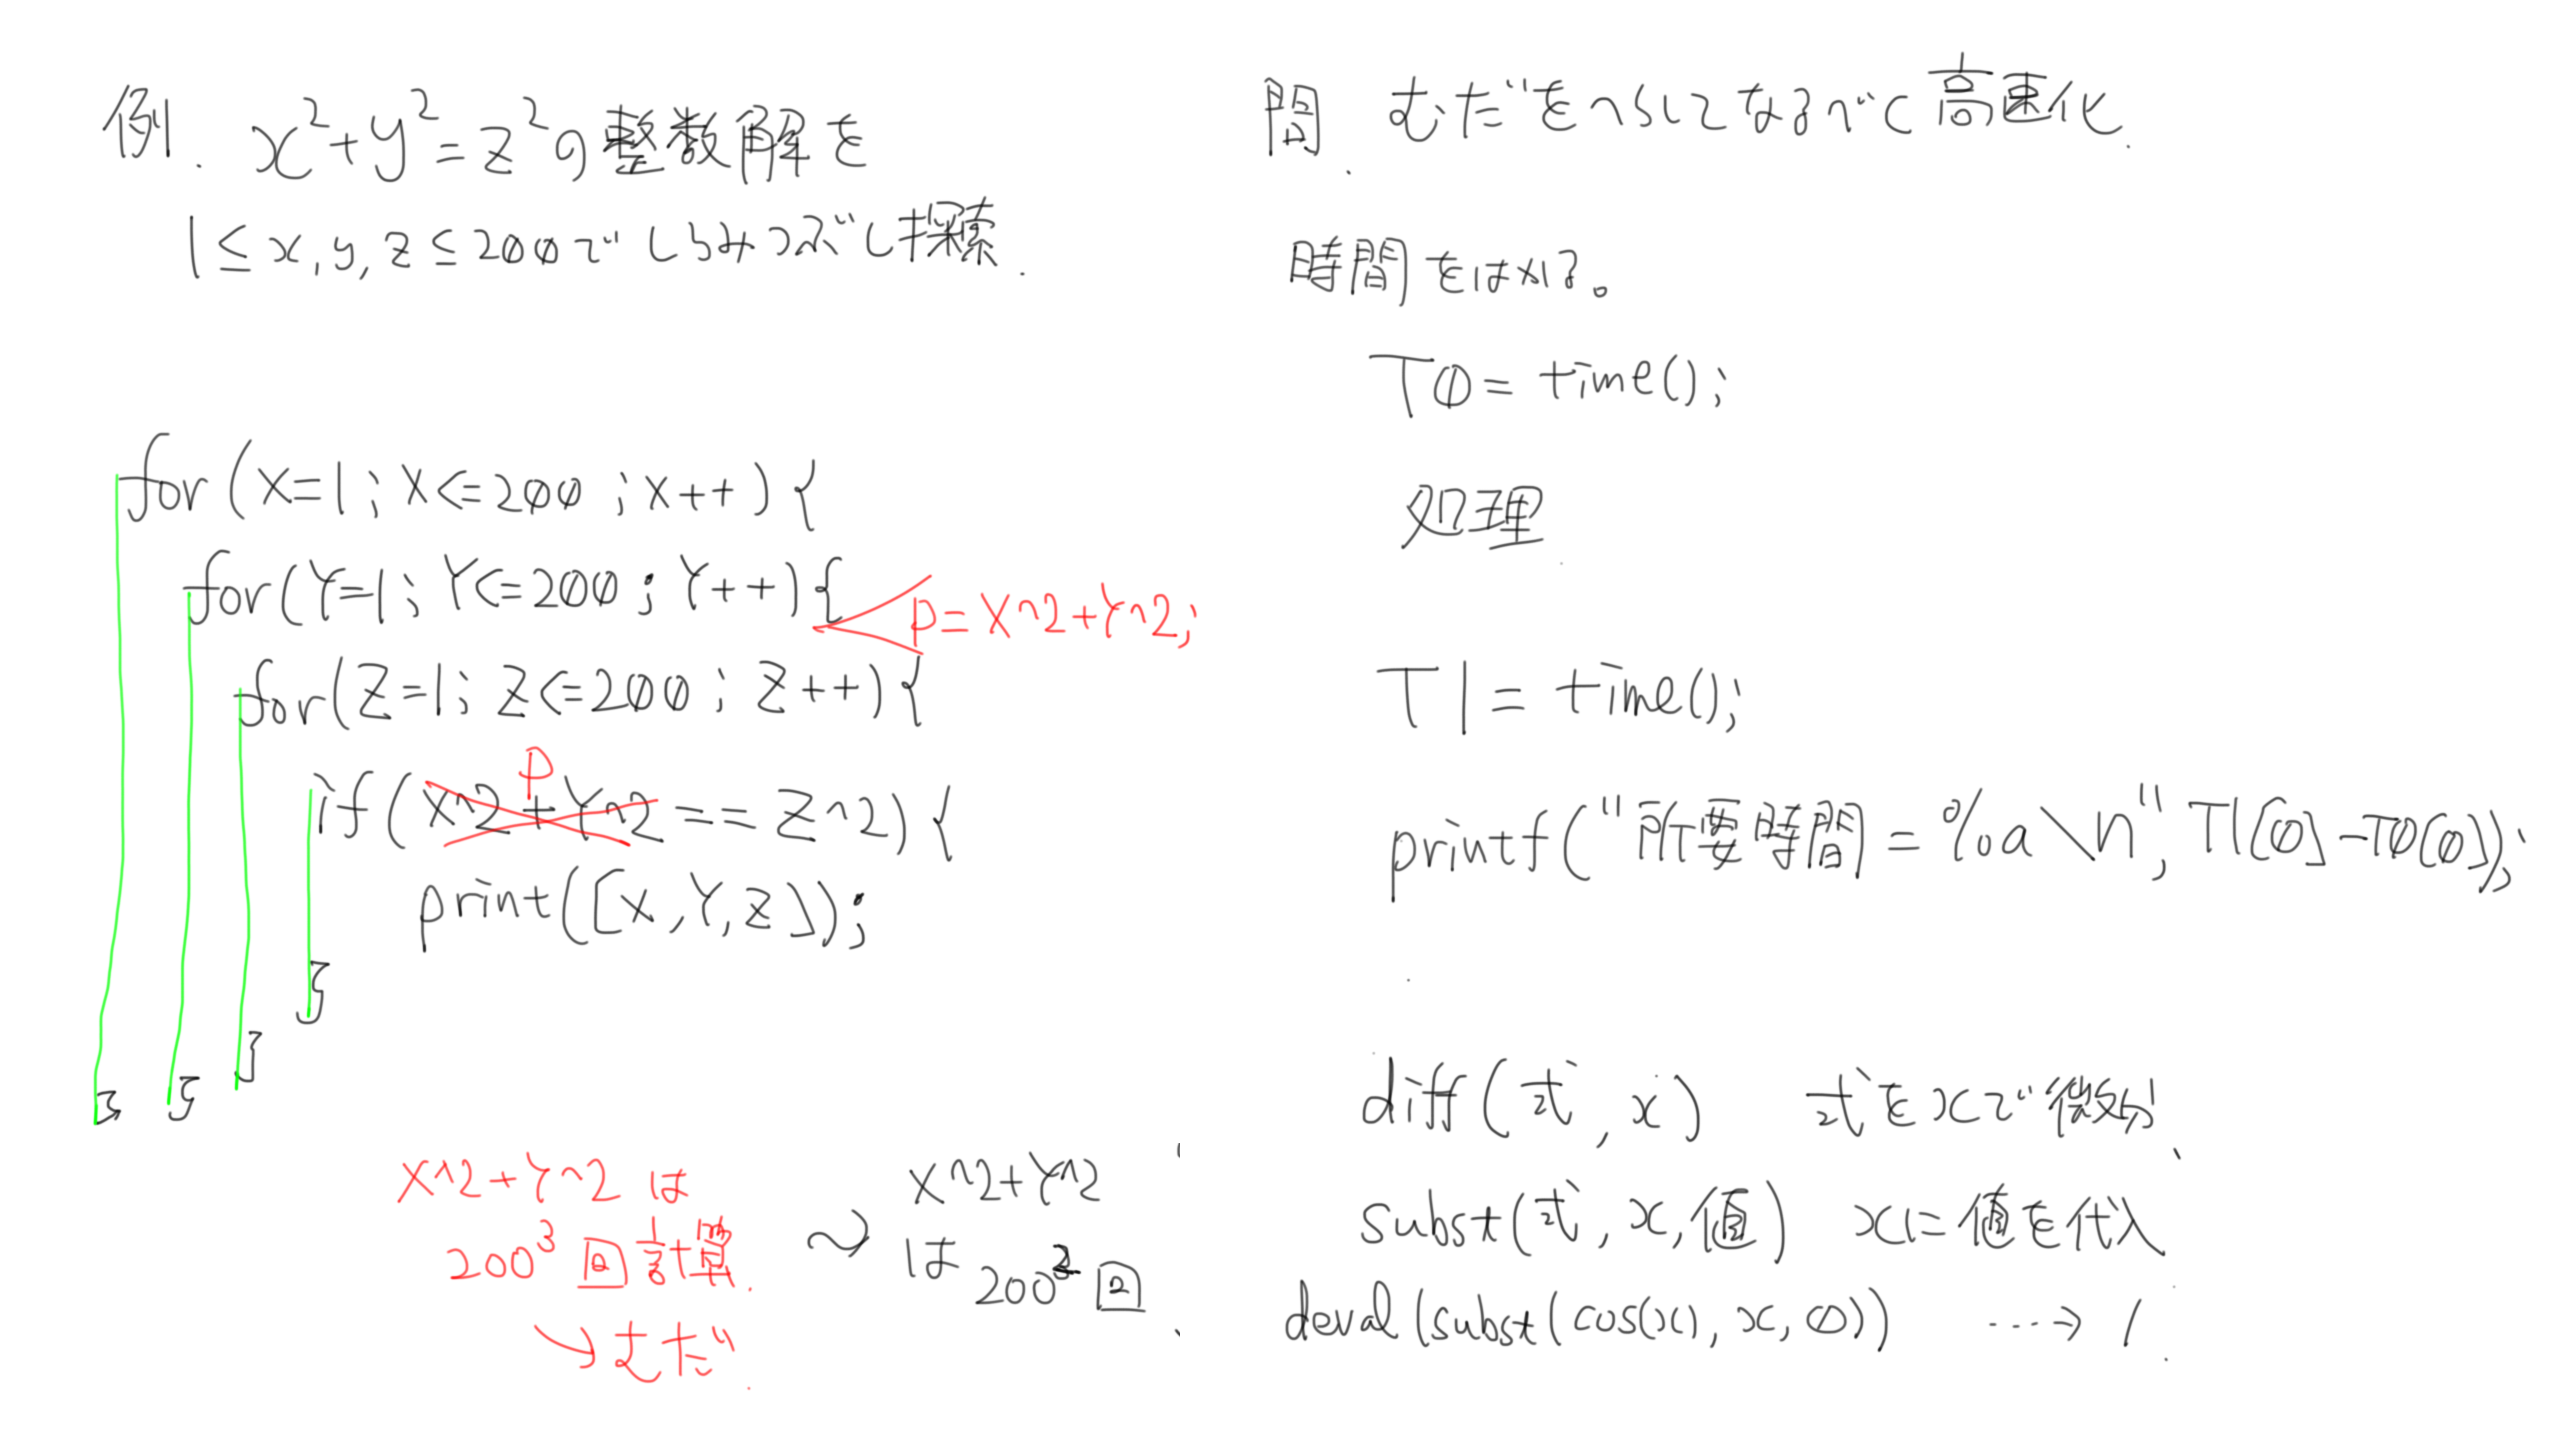 例. x²+y²=z²の整数解を
1≤x,y,z≤200でしらみつぶし探索.
for(X=1;X<=200;X++){
for(Y=1;Y<=200;Y++){
P=X^2+Y^2;
for(Z=1;Z<=200;Z++){
P
if(X^2+Y^2==Z^2){
print([X,Y,Z]);
}
}
}
}
X^2+Y^2は
200³回計算.
→むだ.
~> X^2+Y^2
は200²回
問. むだをへらしてなるべく高速化.
時間をはかる。
T0=time();
処理
T1=time();
printf("所要時間=%a\n",T1[0]-T0[0]);
diff(式,x) 式をxで微分、
subst(式,x,値) xに値を代入
deval(subst(cos(x),x,0)) ...→ 1.